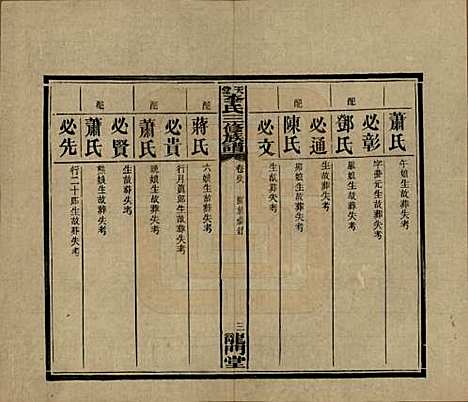 蕭氏
午娘生故葬失考
必彰
字 元生故葬失考
配
鄧氏
娘生故葬失考
必通
生故葬失考
配
陳氏
娘生故葬失考
必文
生故葬失考
天堂李氏三修族譜
卷
三
龍門堂
配
蔣氏
六娘生故葬失考
必貴
行月 郎生故葬失考
配
蕭氏
晚娘生故葬失考
必賢
生故葬失考
配
蕭氏
娘生故葬失考
必先
行二十郎生故葬失考